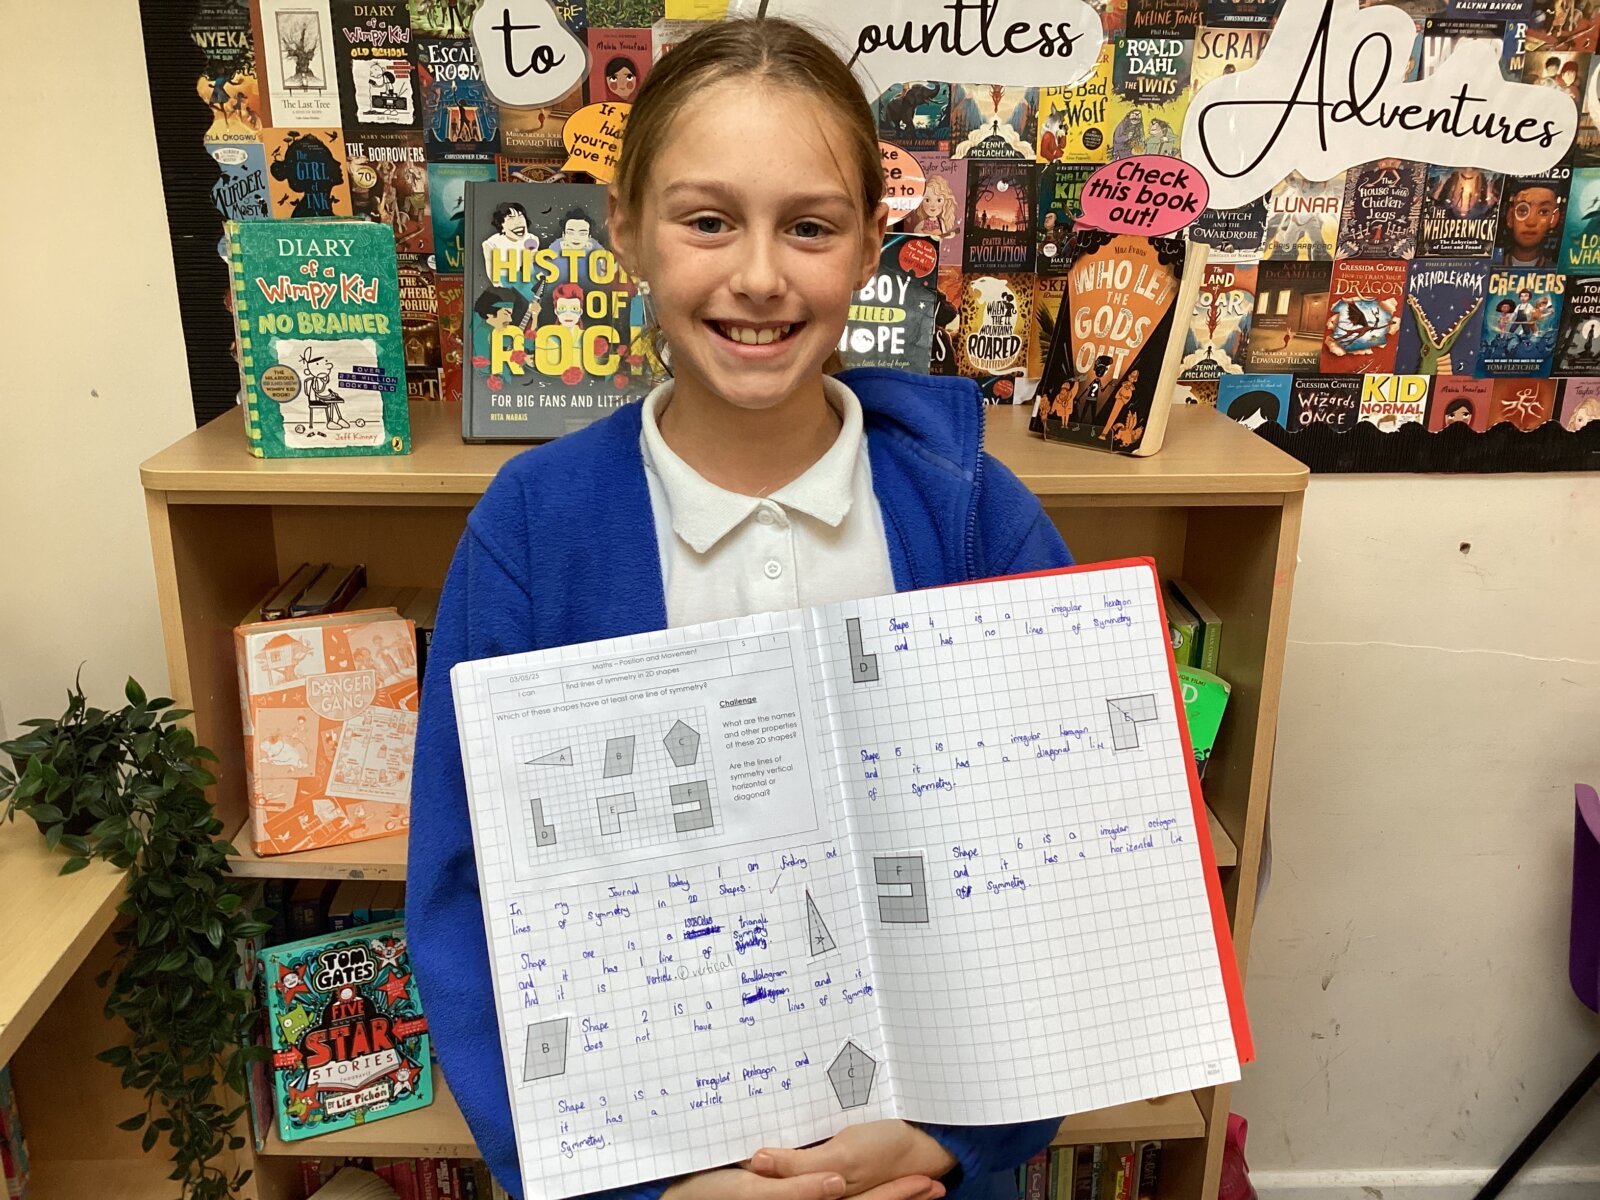 to
Countless
Adventures
DIARY
of a
Wimpy Kid
NO BRAINER
THE
HILARIOUS
BOOK!
OVER
275 MILLION
BOOKS SOLD
Jeff Kinney
DIARY
of a
Wimpy Kid
OLD SCHOOL
The Last Tree
MARY NORTON
THE BORROWERS
THE
GIRL
OF
INK
HISTO
OF
ROCK
FOR BIG FANS AND LITTLE
RITA NABAIS
Malala Yousafzai
JENNY
MCLACHLAN
Big Bad
Wolf
Phil Hickes
AVELINE JONES
ROALD
DAHL
THE TWITS
SCRAP
CHRISTOPHER EDGE
KALYNN BAYRON
Check
this book
out!
Maz Evans
WHO LET
THE
GODS
OUT
CRATER LAKE
EVOLUTION
BOY
CALLED
HOPE
WHEN
THE
MOUNTAINS
ROARED
THE WITCH
AND THE
WARDROBE
LUNAR
CHRIS BRADFORD
The
House with
Chicken
Legs
THE
WHISPERWICK
The Labyrinth
of Lost and Found
THE
LAND
OF
ROAR
JENNY
MCLACHLAN
KATE
DICAMILLO
EDWARD TULANE
CRESSIDA COWELL
HOW TO TRAIN YOUR
DRAGON
PHILIP RIDLEY
KRINDLEKRAX
CREAKERS
TOM FLETCHER
CRESSIDA COWELL
The
Wizards
of
ONCE
KID
NORMAL
DANGER
GANG
TOM
GATES
FIVE
STAR
STORIES
BY Liz Pichon
03/05/25
Maths – Position and Movement
S
1
I can
find lines of symmetry in 2D shapes
Which of these shapes have at least one line of symmetry?
Challenge
What are the names
and other properties
of these 2D shapes?
Are the lines of
symmetry vertical
horizontal or
diagonal?
A
B
C
D
E
F
In my Journal today I am finding out
lines of symmetry in 2D shapes.
Shape one is a isosceles triangle
and it has 1 line of symmetry
And it is verticle. vertical
B
Shape 2 is a Parallelogram and it
does not have any lines of symmetry
Shape 3 is a irregular pentagon and
it has a verticle line of
Symmetry.
C
D
Shape 4 is a irregular hexagon
and has no lines of symmetry
E
Shape 5 is a irregular hexagon
and it has a diagonal line
of symmetry.
F
Shape 6 is a irregular octogon
and it has a horizontal line
of symmetry.